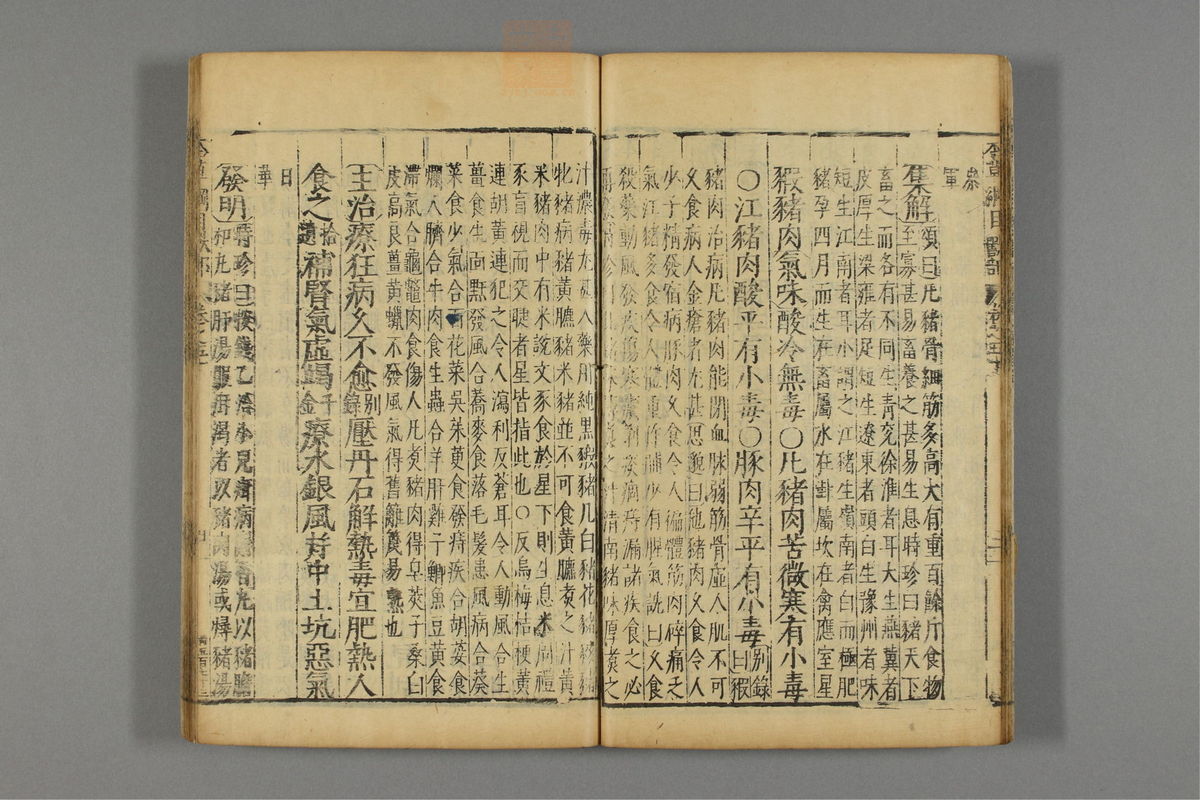 集解頌曰凡豬骨細筋多高大有重百餘斤食物
至寡甚易畜養之甚易生息時珍曰豬天下
畜之而各有不同生青兗徐淮者耳大生燕冀者
皮厚生梁雍者足短生遼東者頭白生豫州者味
短生江南者耳小謂之江豬生嶺南者白而極肥
豬孕四月而生在畜屬水在卦屬坎在禽應室星
豭豬肉氣味酸冷無毒〇凡豬肉苦微寒有小毒
〇江豬肉酸平有小毒〇豚肉辛平有小毒別錄曰豭
豬肉治病凡豬肉能閉血脉弱筋骨虛人肌不可
久食病人金瘡者尤甚思邈曰凡豬肉久食令人
少子精發宿病豚肉久食令人徧體筋肉碎痛乏
氣江豬多食令人體重作脯少有腥氣詵曰久食
殺藥動風發疾傷寒瘧痢痰痼痔漏諸疾食之必
豬味厚煑之
汁濃毒尤甚入藥用純黑豭豬凡白豬花豬
牝豬病豬黃膘豬米豬並不可食黃膘煑之汁黃
米豬肉中有米說文豕食於星下則生息米
豕盲視而交睫者星皆指此也〇反烏梅桔梗黃
連胡黃連犯之令人瀉利反蒼耳令人動風合生
薑食生面䵟發風合蕎麥食落毛髮患風病合葵
菜食少氣合百花菜吳茱萸食發痔疾合胡荽食
爛人臍合牛肉食生蟲合羊肝雞子鯽魚豆黃食
滯氣合龜鼈肉食傷人凡煑豬肉得皂莢子桑白
皮高良薑黃蠟不發風氣得舊籬篾易熟也
主治療狂病久不愈別錄壓丹石解熱毒宜肥熱人
食之拾遺補腎氣虛竭千金療水銀風并中土坑惡氣
日華
發明時珍曰按錢乙治小兒